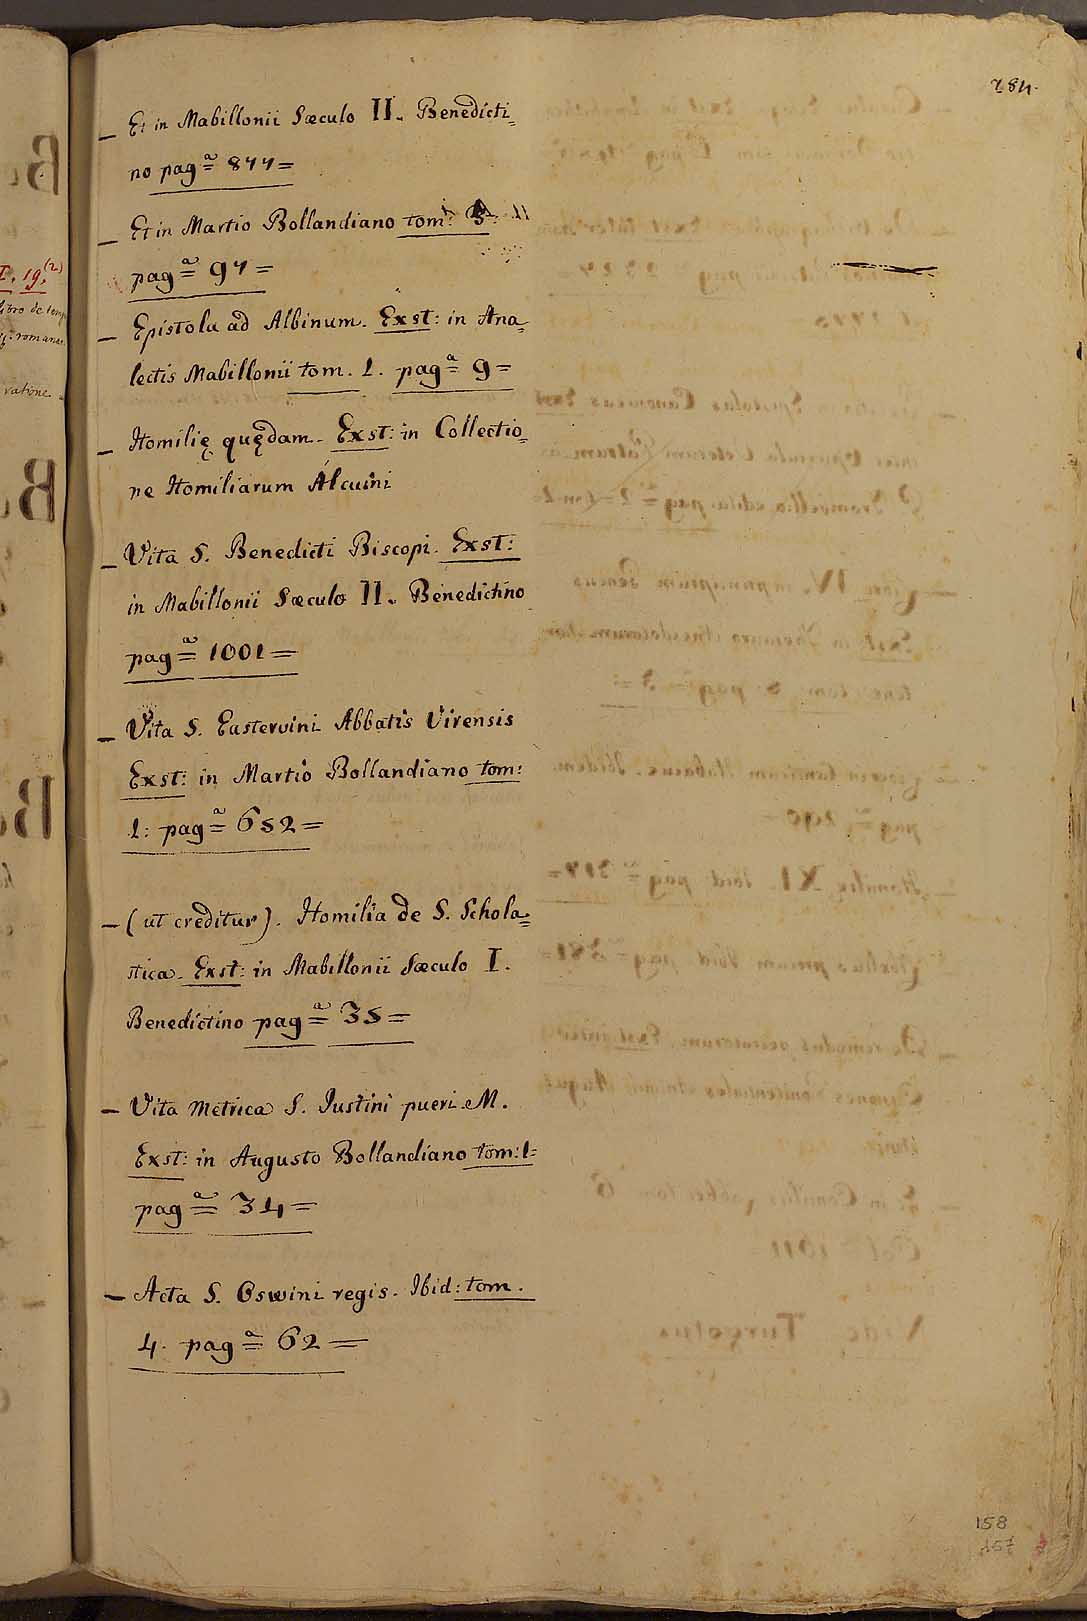 284.
– Et in Mabillonii Sæculo II. Benedicti=
no pagª= 877=
– Et in Martio Bollandiano tom:
pagª= 97=
– Epistola ad Albinum. Exst: in Ana=
lectis Mabillonii tom. 1. pagª= 9=
– Homilię quędam. Exst: in Collectio=
ne Homiliarum Alcuini
– Vita S. Benedicti Biscopi. Exst:
in Mabillonii Sæculo II. Benedictino
pagª= 1001=
– Vita S. Eastervini Abbatis Virensis
Exst: in Martio Bollandiano tom:
1: pagª= 652=
– (ut creditur). Homilia de S. Schola=
stica. Exst: in Mabillonii Sæculo I.
Benedictino pagª= 35=
– Vita Metrica S. Justini pueri M.
Exst: in Augusto Bollandiano tom: 1=
pagª= 34=
– Acta S. Oswini regis. Ibid: tom.
4. pagª= 62=
158
157